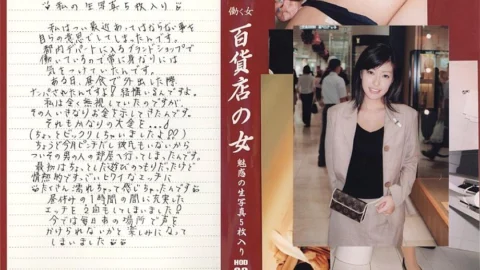 私の生写真5枚入り
私はつい最近やってはならない事を
自らの意思でしてしまったんです。
都内デパートに入るブランドショップで
働いているので常に身なりには
気をつけていたんです。
ある日、昼食で外出した際、
ナンパされたんですよ?結構いるんですよ。
私は全く無視していたのですが、
その人いきなりお金を示してきたんです。
それもかなりの大金を
(ちょっとビックリしちゃいましたよ!?)
ちょうど今月ピンチだし彼氏もいないから
ついその男の人の部屋へ行ってしまったんです。
最初はちょっとした遊びのつもりだったけど
情熱的ですっごいヒワイなエッチに
たくさん濡れちゃって感じちゃったんです
昼休みの1時間の間に充実した
エッチを2回もしてしまいました!
今では毎日あの場所で声を
かけられないかと楽しみになって
しまいました
働く女
百貨店の女
魅惑の生写真5枚入り
HOD